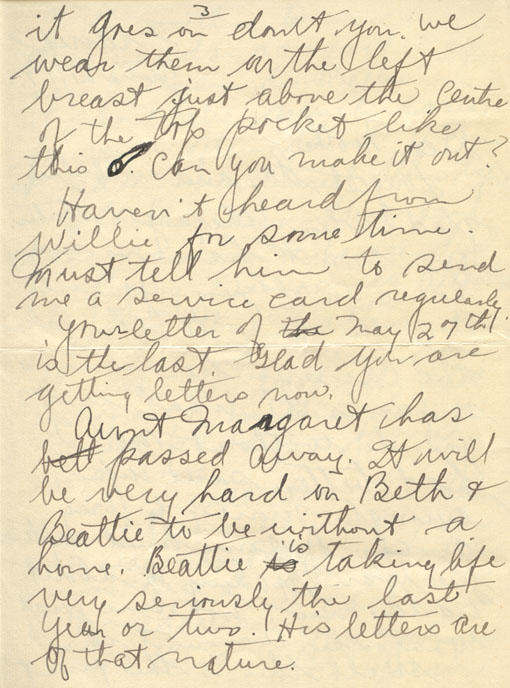 it goes on 3 don't you. we
wear them on the left
breast just above the centre
of the top pocket like
this . Can you make it out?
Haven't heard from
Willie for some time.
Must tell him to send
me a service card regularly
Your letter of the May 27th.
is the last. Glad you are
getting letters now.
Aunt Margaret has
passed away. It will
be very hard on Beth &
Beattie to be without a
home. Beattie is is taking life
very seriously the last
year or two. His letters are
of that nature.